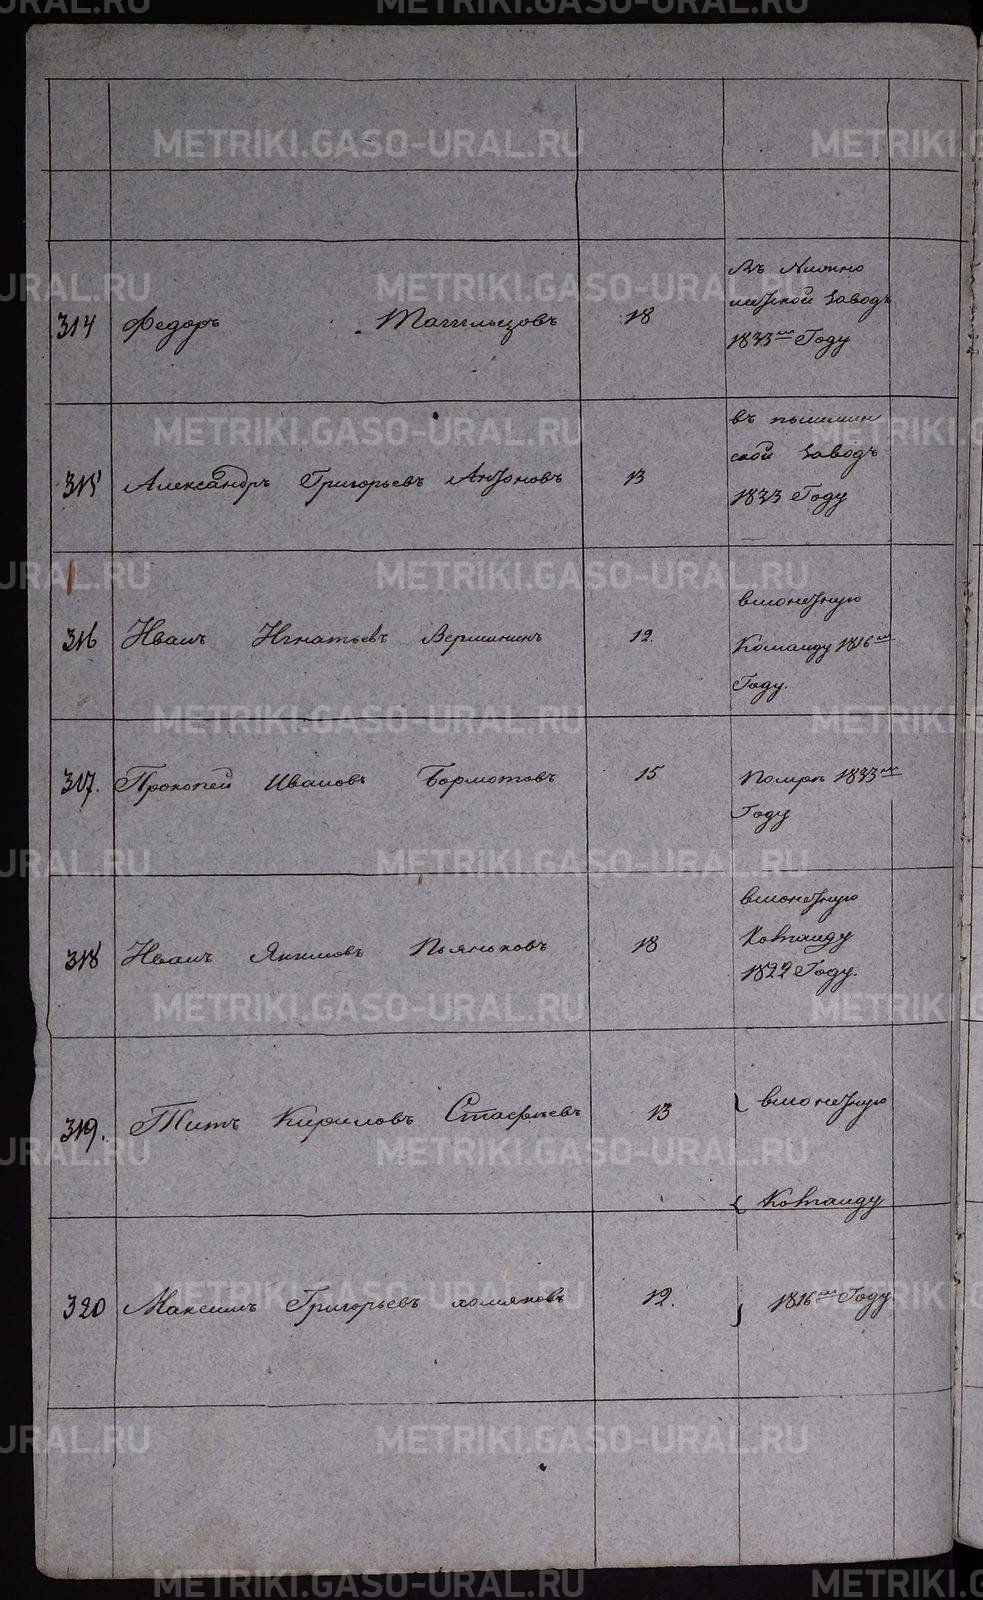 METRIKI.GASO-URAL.RU
314 Федоръ Тагильцовъ 18 Въ Нижно
исетской Заводъ
1833го Году
315 Александръ Григорьевъ Антоновъ 13 въ пышмин
ской Заводъ
1833 Году
316 Иванъ Игнатьевъ Вершининъ 12. вмонетную
Команду 1816го
Году.
317. Прокопей Ивановъ Бормотовъ 15 Помръ 1833го
Году
318 Иванъ Якимовъ Пьянковъ 18 вмонетную
Команду
1822 Году.
319. Титъ Кириловъ Стафѣевъ 13 вмонетную
Команду
320 Максимъ Григорьевъ хомяковъ 12. 1816го Году